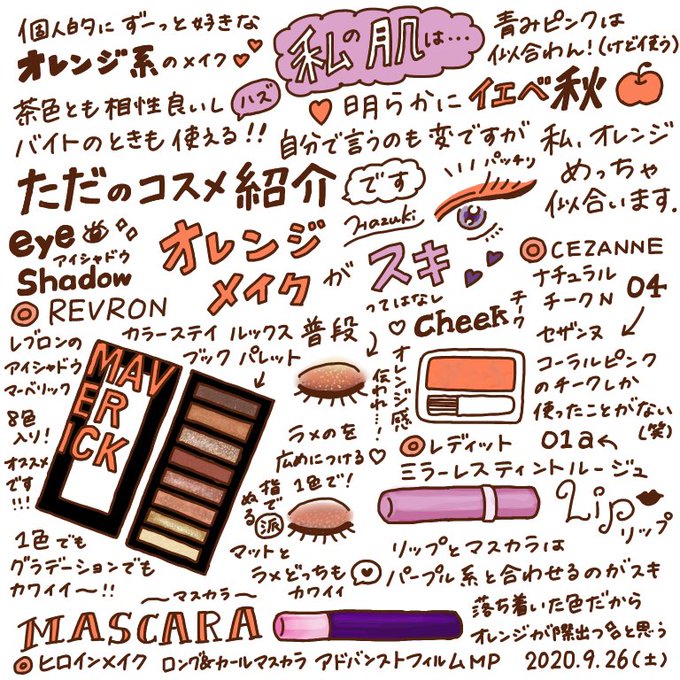 個人的に ずーっと好きな
オレンジ系のメイク
私の肌は…
青みピンクは
似合わん!(けど使う)
茶色とも相性良いし
ハズ
バイトのときも使える!!
明らかに イエベ秋
自分で言うのも変ですが
私、オレンジ
めっちゃ
似合います.
ただのコスメ紹介
です
Hazuki
パッチリ
eye
アイシャドウ
Shadow
オレンジ
メイクが
スキ
ってはなし
REVRON
レブロンの
アイシャドウ
マーベリック
カラーステイ ルックス
ブック パレット
MAVERICK
8色
入り!
オススメ
です
!!!
1色でも
グラデーションでも
カワイイ〜!!
普段
オレンジ感
伝われ…!
ラメのを
広めにつける
1色で!
指で
ぬる
派
マットと
ラメどっちも
カワイイ
CEZANNE
ナチュラル
チークN 04
Cheek
チーク
セザンヌ
コーラルピンク
のチークしか
使ったことがない
(笑)
レディット 01a
ミラーレスティントルージュ
Lip
リップ
リップとマスカラは
パープル系と合わせるのがスキ
落ち着いた色だから
オレンジが際立つと思う
〜マスカラ〜
MASCARA
ヒロインメイク ロング&カールマスカラ アドバンストフィルムMP
2020.9.26(土)